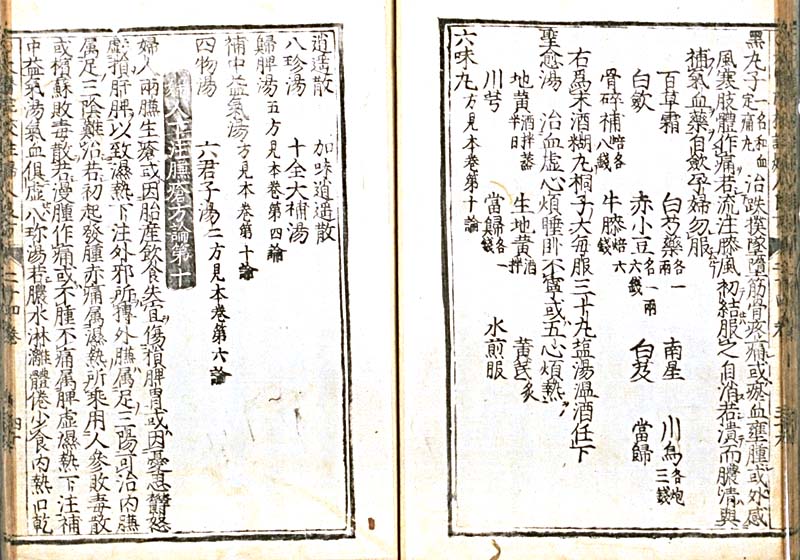 黑丸子 一名和血定痛丸 治跌撲墜墮筋骨疼痛或瘀血壅腫或外感
風寒肢體作痛若流注膝風初結服之自消若潰而膿清與
補氣血藥自斂孕婦勿服
百草霜 白芍藥 各一兩 南星 川烏 各炮三錢
白斂 赤小豆 各一兩六錢 白芨 當歸
骨碎補 焙各八錢 牛膝 焙六錢
右爲末酒糊丸桐子大每服三十丸盐湯温酒任下
聖愈湯 治血虛心煩睡卧不寧或五心煩熱
地黃 酒拌蒸半日 生地黃 酒拌 黃芪 炙
川芎 當歸 各一錢 水煎服
六味丸 方見本卷第十論
逍遥散 加味逍遥散
八珍湯 十全大補湯
歸脾湯 五方見本卷第四論
補中益氣湯 方見本卷第十論
四物湯 六君子湯 二方見本卷第六論
婦人下注臁瘡方論第十
婦人兩臁生瘡或因胎産飲食失宜傷損脾胃或因憂思鬱怒
虧損肝脾以致濕熱下注外邪所搏外臁属足三陽可治内臁
属足三陰難治若初起發腫赤痛属濕熱所乗用人參敗毒散
或檳蘇敗毒散若漫腫作痛或不腫不痛属脾虛濕熱下注補
中益氣湯氣血俱虛八珎湯若膿水淋漓體倦少食内熱口乾